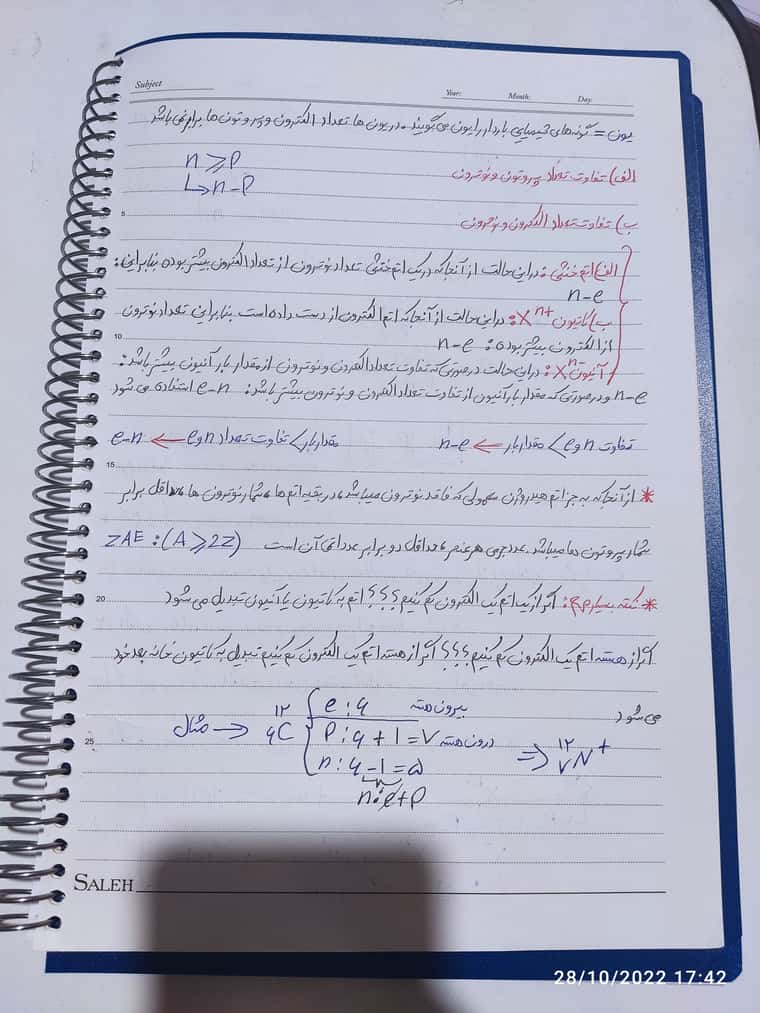 Subject
Year: Month: Day:
یون = گونه‌های شیمیایی باردار را یون می‌گویند. در یون ها تعداد الکترون و پروتون ها برابر نمی باشد
الف) تفاوت تعداد پروتون و نوترون
n ⩾ P
↳ n - P
5
ب) تفاوت تعداد الکترون و نوترون
الف) اتم خنثی: در این حالت از آنجا که در یک اتم خنثی تعداد نوترون از تعداد الکترون بیشتر بوده بنابراین:
n - e
ب) کاتیون Xⁿ⁺: در این حالت از آنجا که اتم الکترون از دست داده است بنابراین تعداد نوترون
10
از الکترون بیشتر بوده: n - e
آنیون Xⁿ⁻: در این حالت در صورتی که تفاوت تعداد الکترون و نوترون از مقدار بار آنیون بیشتر باشد:
n - e و در صورتی که مقدار بار آنیون از تفاوت تعداد الکترون و نوترون بیشتر باشد: e - n استفاده می شود
تفاوت n و e > مقدار بار ← n - e
مقدار بار > تفاوت تعداد n و e ← e - n
15
* از آنجا که به جز اتم هیدروژن معمولی که فاقد نوترون میباشد، در بقیه اتم ها، شمار نوترون ها، حداقل برابر
شمار پروتون ها میباشد. عدد جرمی هر عنصر، حداقل دو برابر عدد اتمی آن است ZAE : (A ⩾ 2Z)
20
* نکته بسیار مهم: اگر از یک اتم یک الکترون کم کنیم؟؟؟ اتم به کاتیون یا آنیون تبدیل می شود
اگر از هسته اتم یک الکترون کم کنیم؟؟؟ اگر از هسته اتم یک الکترون کم کنیم تبدیل به کاتیون خانه بعد خود
می شود
e : ۶ بیرون هسته
مثال → ¹²₆C
25
P : ۶ + 1 = ۷ درون هسته
⇒ ¹²₇N⁺
n : ۶ - 1 = ۵
n : e + P
SALEH
28/10/2022 17:42